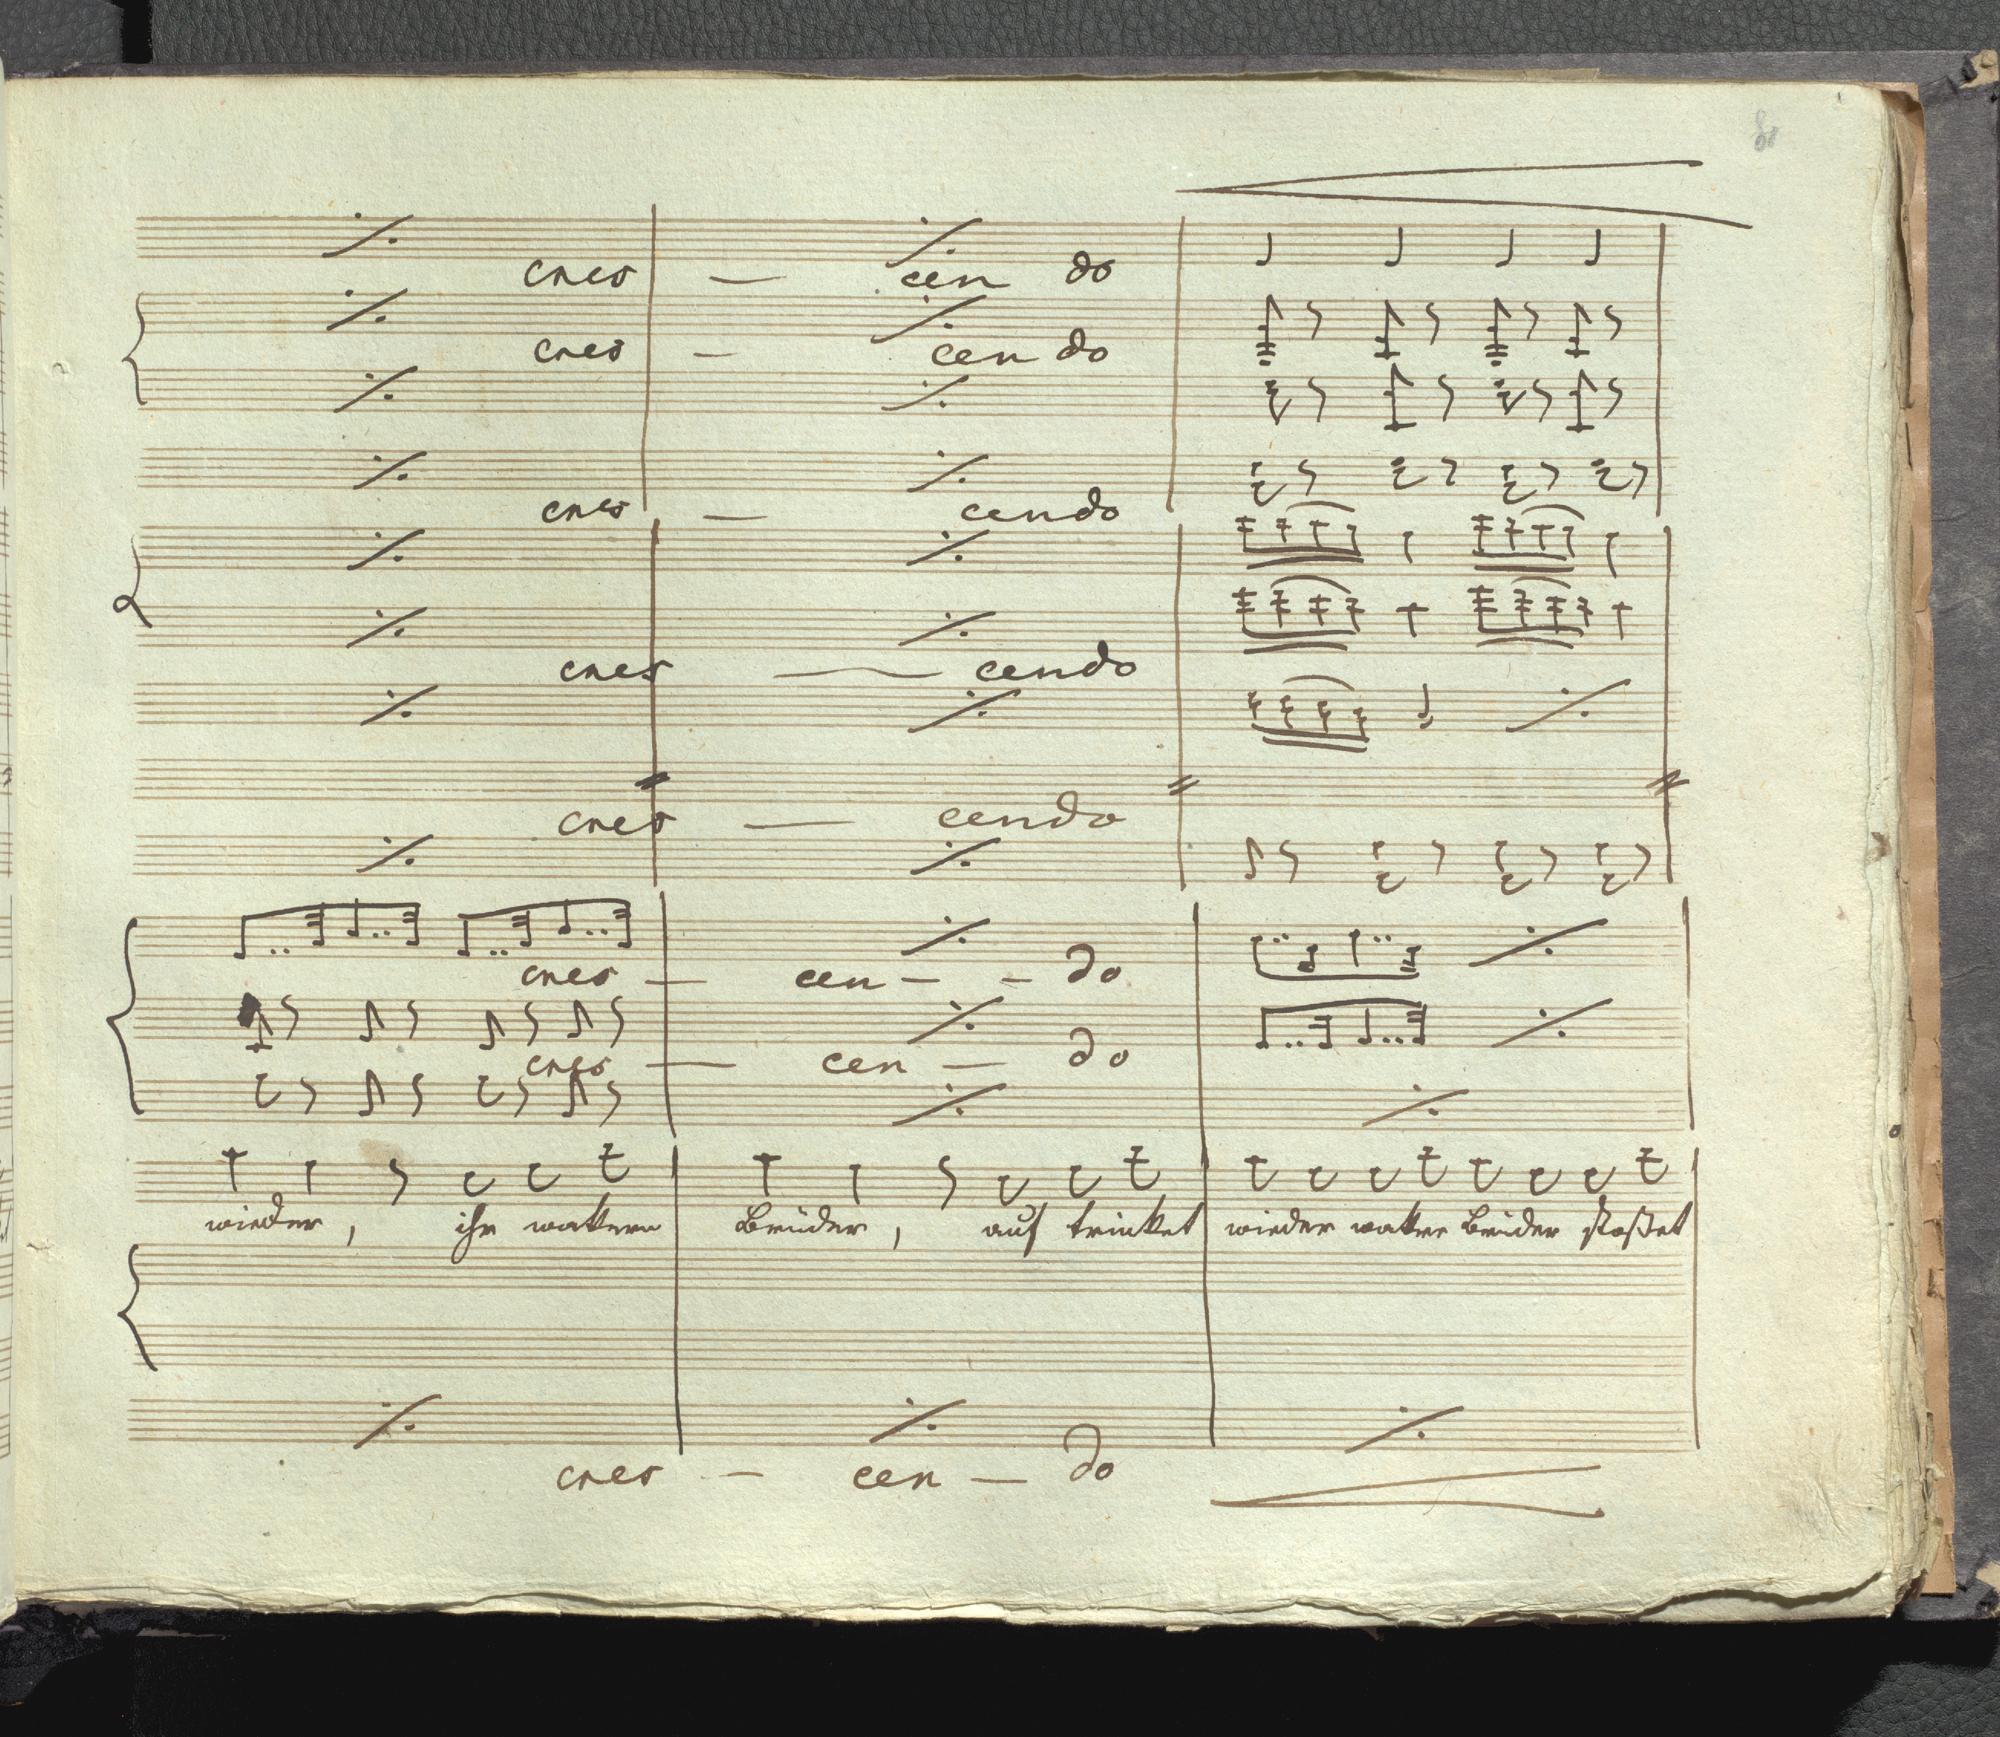 cres — cen do
cres — cen do
cres — cendo
cres — cendo
cres — cendo
cres — cen – – do
cres — cen — do
wieder, ihr wakkern Brüder, auf trinket wieder wakre Brüder stoßet
cres — cen — do